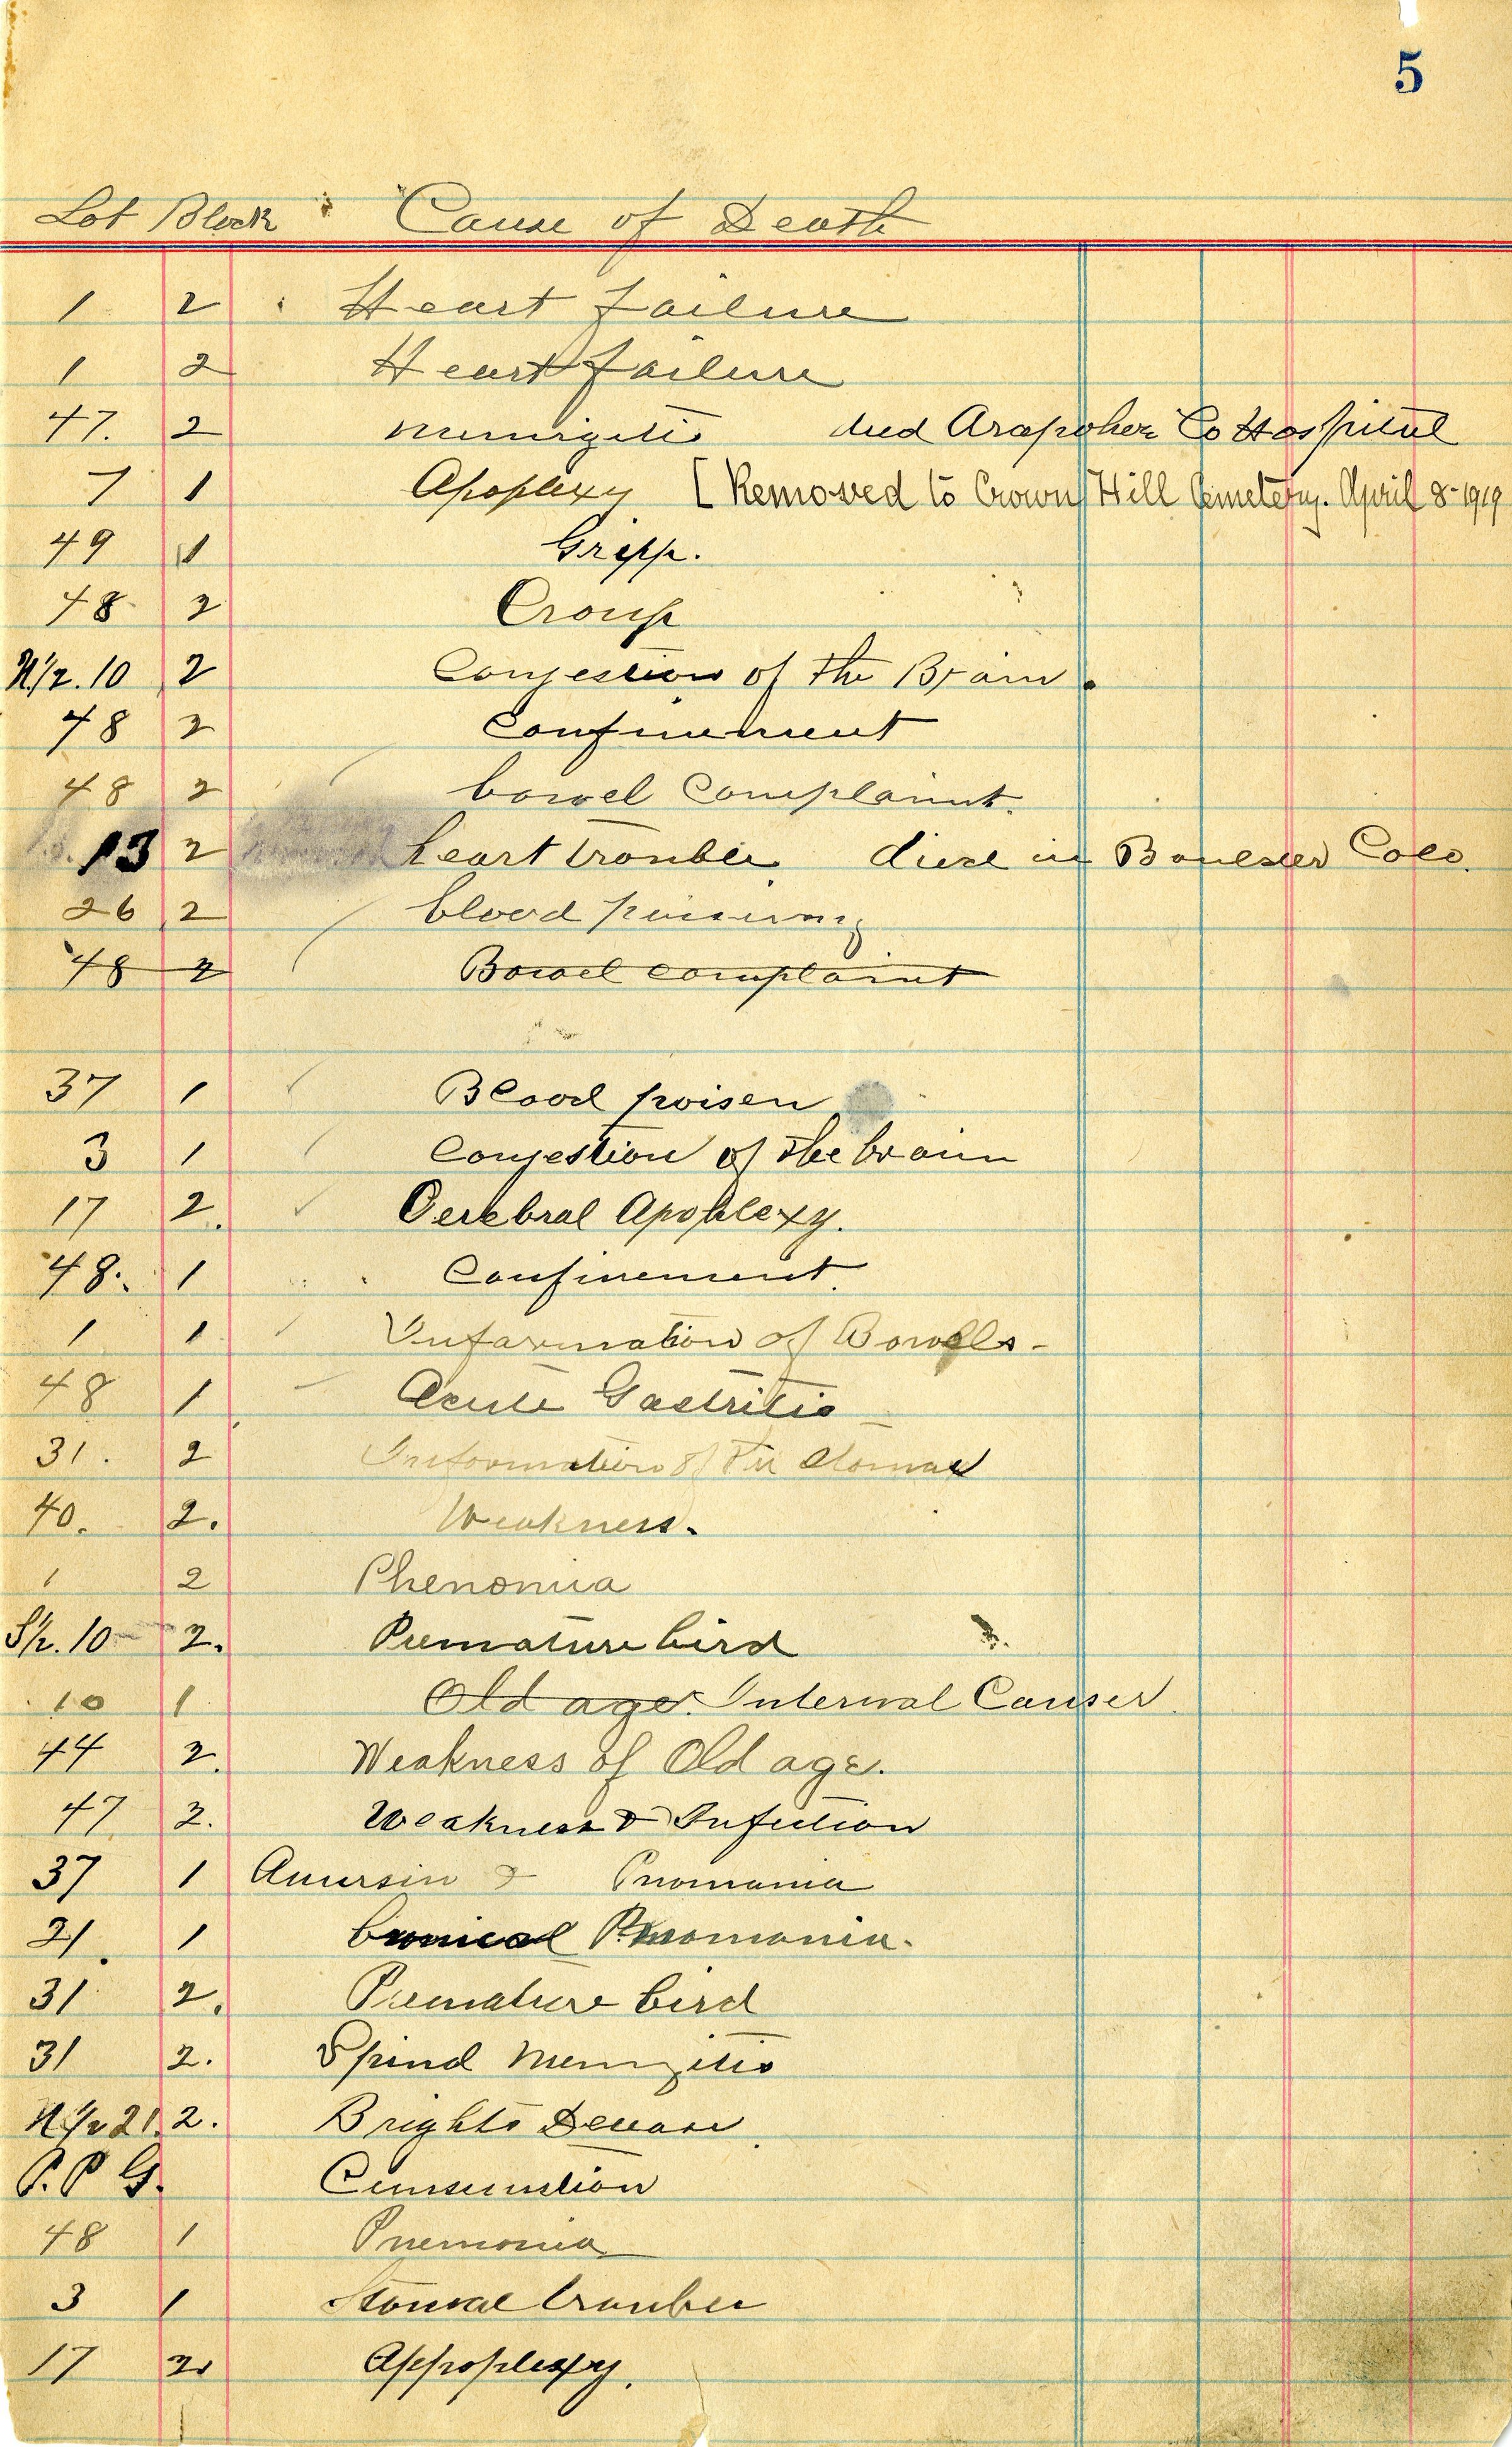 5
Lot Block Cause of Death
1 2 Heart failure
1 2 Heart failure
47. 2 died Arapohoe Co Hospital
7 1 Apoplexy [Removed to Crown Hill Cemetery. April 8-1919
49 1 Gripp.
48 2 Croup
N1/2.10 2 Conjestion of the Brain.
48 2 Confinement
48 2 bowel Complainnt.
13 2 heart trouble died in Boulder Colo.
26 2 blood
48 2 Bowel complaint
37 1 Blood poisen
3 1 Conjestion of the brain
17 2. Cerebral Apoplexy.
48. 1 Confinement.
1 1 Infarmation of Bowells-
48 1 Acute Gastritis
31. 2 Information of the
40. 2. Weakness.
1 2 Phenomia
S1/2.10 2. Premature bird
10 1 Old age. Internal Causes
44 2. Weakness of Old age.
47 2. Weakness & Infection
37 1 &
21. 1
31 2. Premature bird
31 2. Spinol
N 1/2 21. 2. Brights
P. P G.
48 1 Pnemonia
3 1
17 2. Appoplexy.